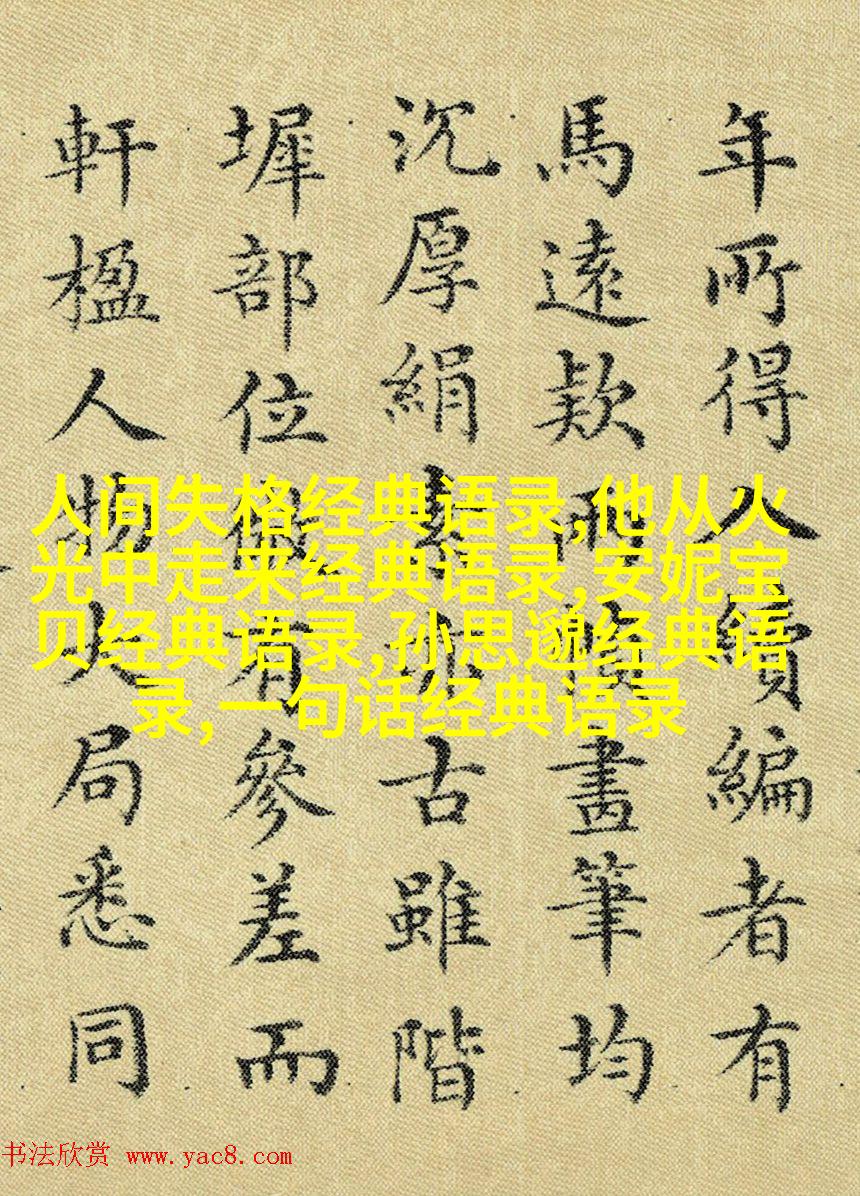 年所得入續編者有
馬遠款兩幀畫筆均
沉厚絹素亦古雖階
墀部位微有參差而
軒楹人物大局悉同
人间失格经典语录,他从火
光中走来经典语录,安妮宝
贝经典语录,孙思邈经典语
录,一句话经典语录
书法欣赏 www.yac8.com